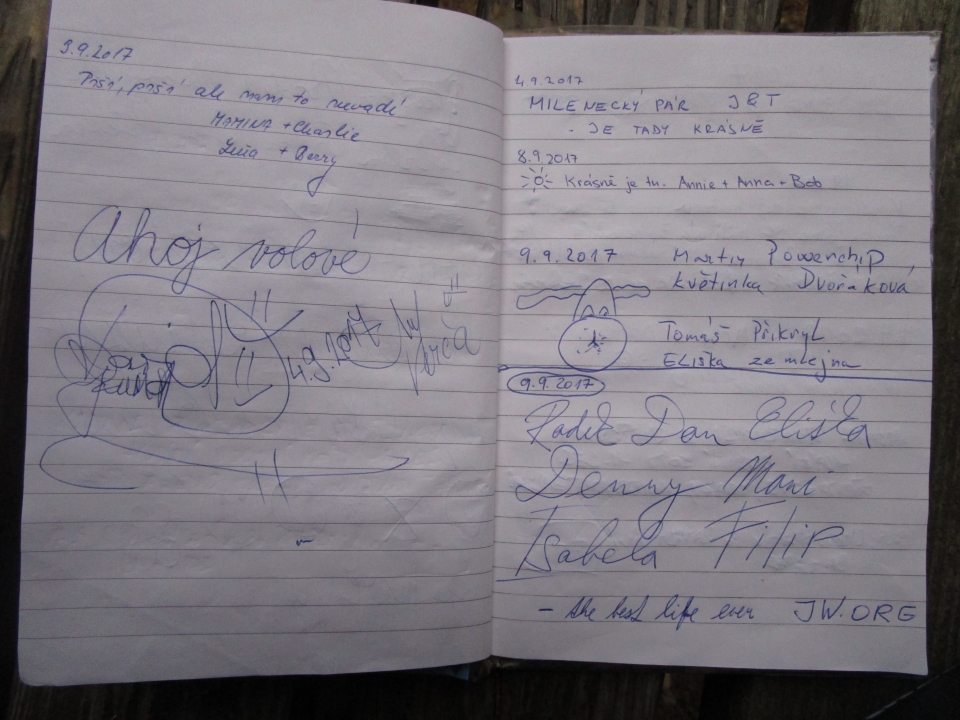 3.9.2017
Prší, prší ale nám to nevadí
MAMINA + Charlie
Zuša + Berry
Ahoj volové
4.9.2017
4.9.2017
MILENECKÝ PÁR J&T
- JE TADY KRÁSNĚ
8.9.2017
Krásně je tu. Annie + Anna + Bob
9.9.2017 Martin Powerchip
Květinka Dvořáková
Tomáš Přikryl
ELIŠKA ze mlejna
9.9.2017
Radek Dan Eliška
Denny Mani
Isabela Filip
- the best life ever JW.ORG